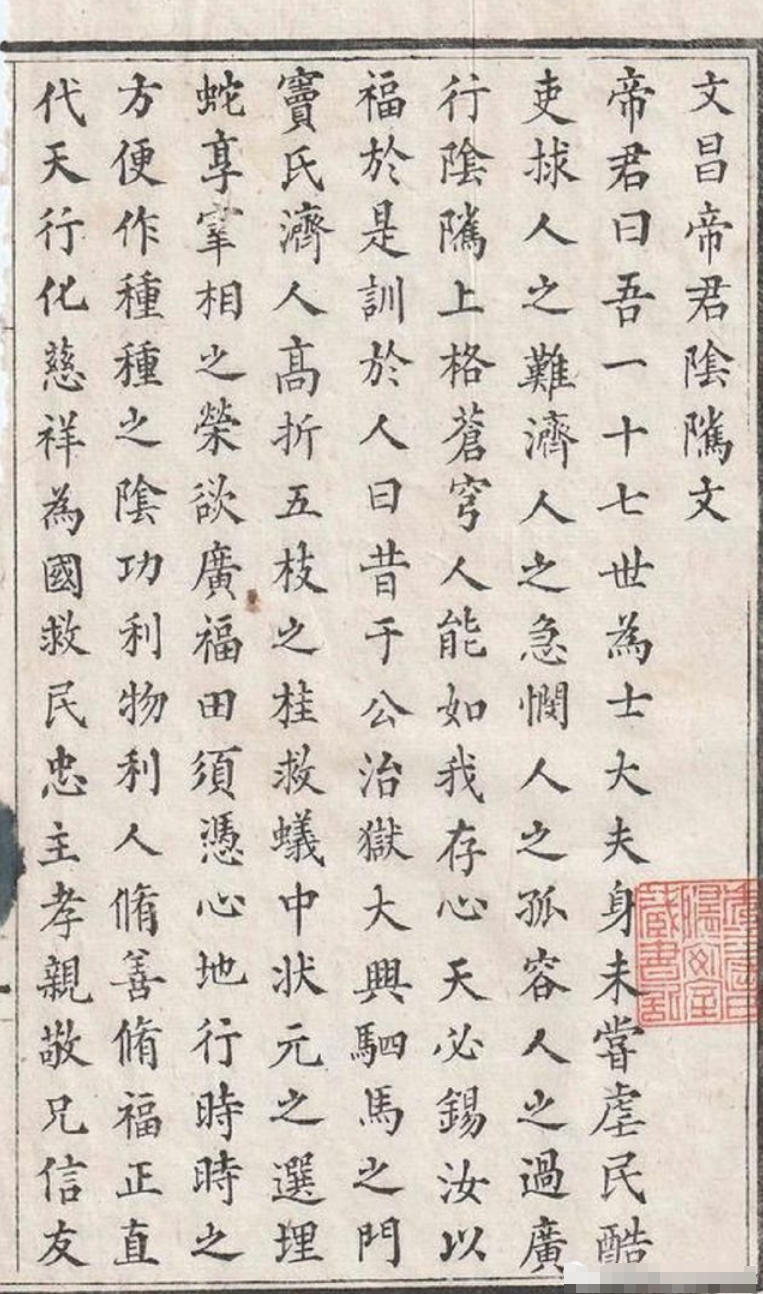 文昌帝君陰隲文
帝君曰吾一十七世為士大夫身未嘗虐民酷
吏捄人之難濟人之急憫人之孤容人之過廣
行陰隲上格蒼穹人能如我存心天必錫汝以
福於是訓於人曰昔于公治獄大興駟馬之門
竇氏濟人高折五枝之桂救蟻中狀元之選埋
蛇享宰相之榮欲廣福田須憑心地行時時之
方便作種種之陰功利物利人脩善脩福正直
代天行化慈祥為國救民忠主孝親敬兄信友